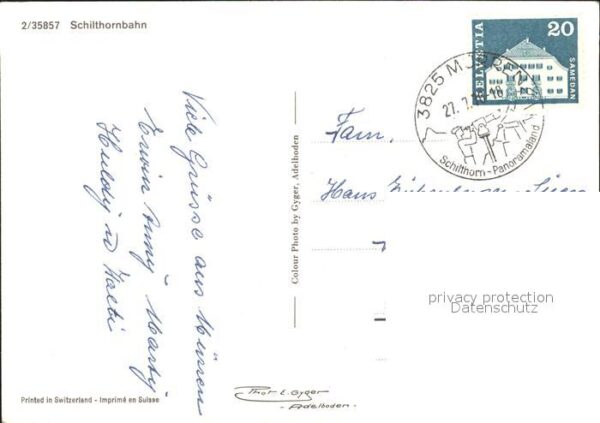 2/35857 Schilthornbahn
Viele Grüsse aus Mürren
Erwin Anny Marty
Huldy u
Printed in Switzerland - Imprimé en Suisse
Colour Photo by Gyger, Adelboden
Phot E. Gyger
- Adelboden -
HELVETIA
20
SAMEDAN
3825 MÜRREN
27.7.
-18
Schilthorn-Panoramaland
Fam.
Hans
privacy protection
Datenschutz